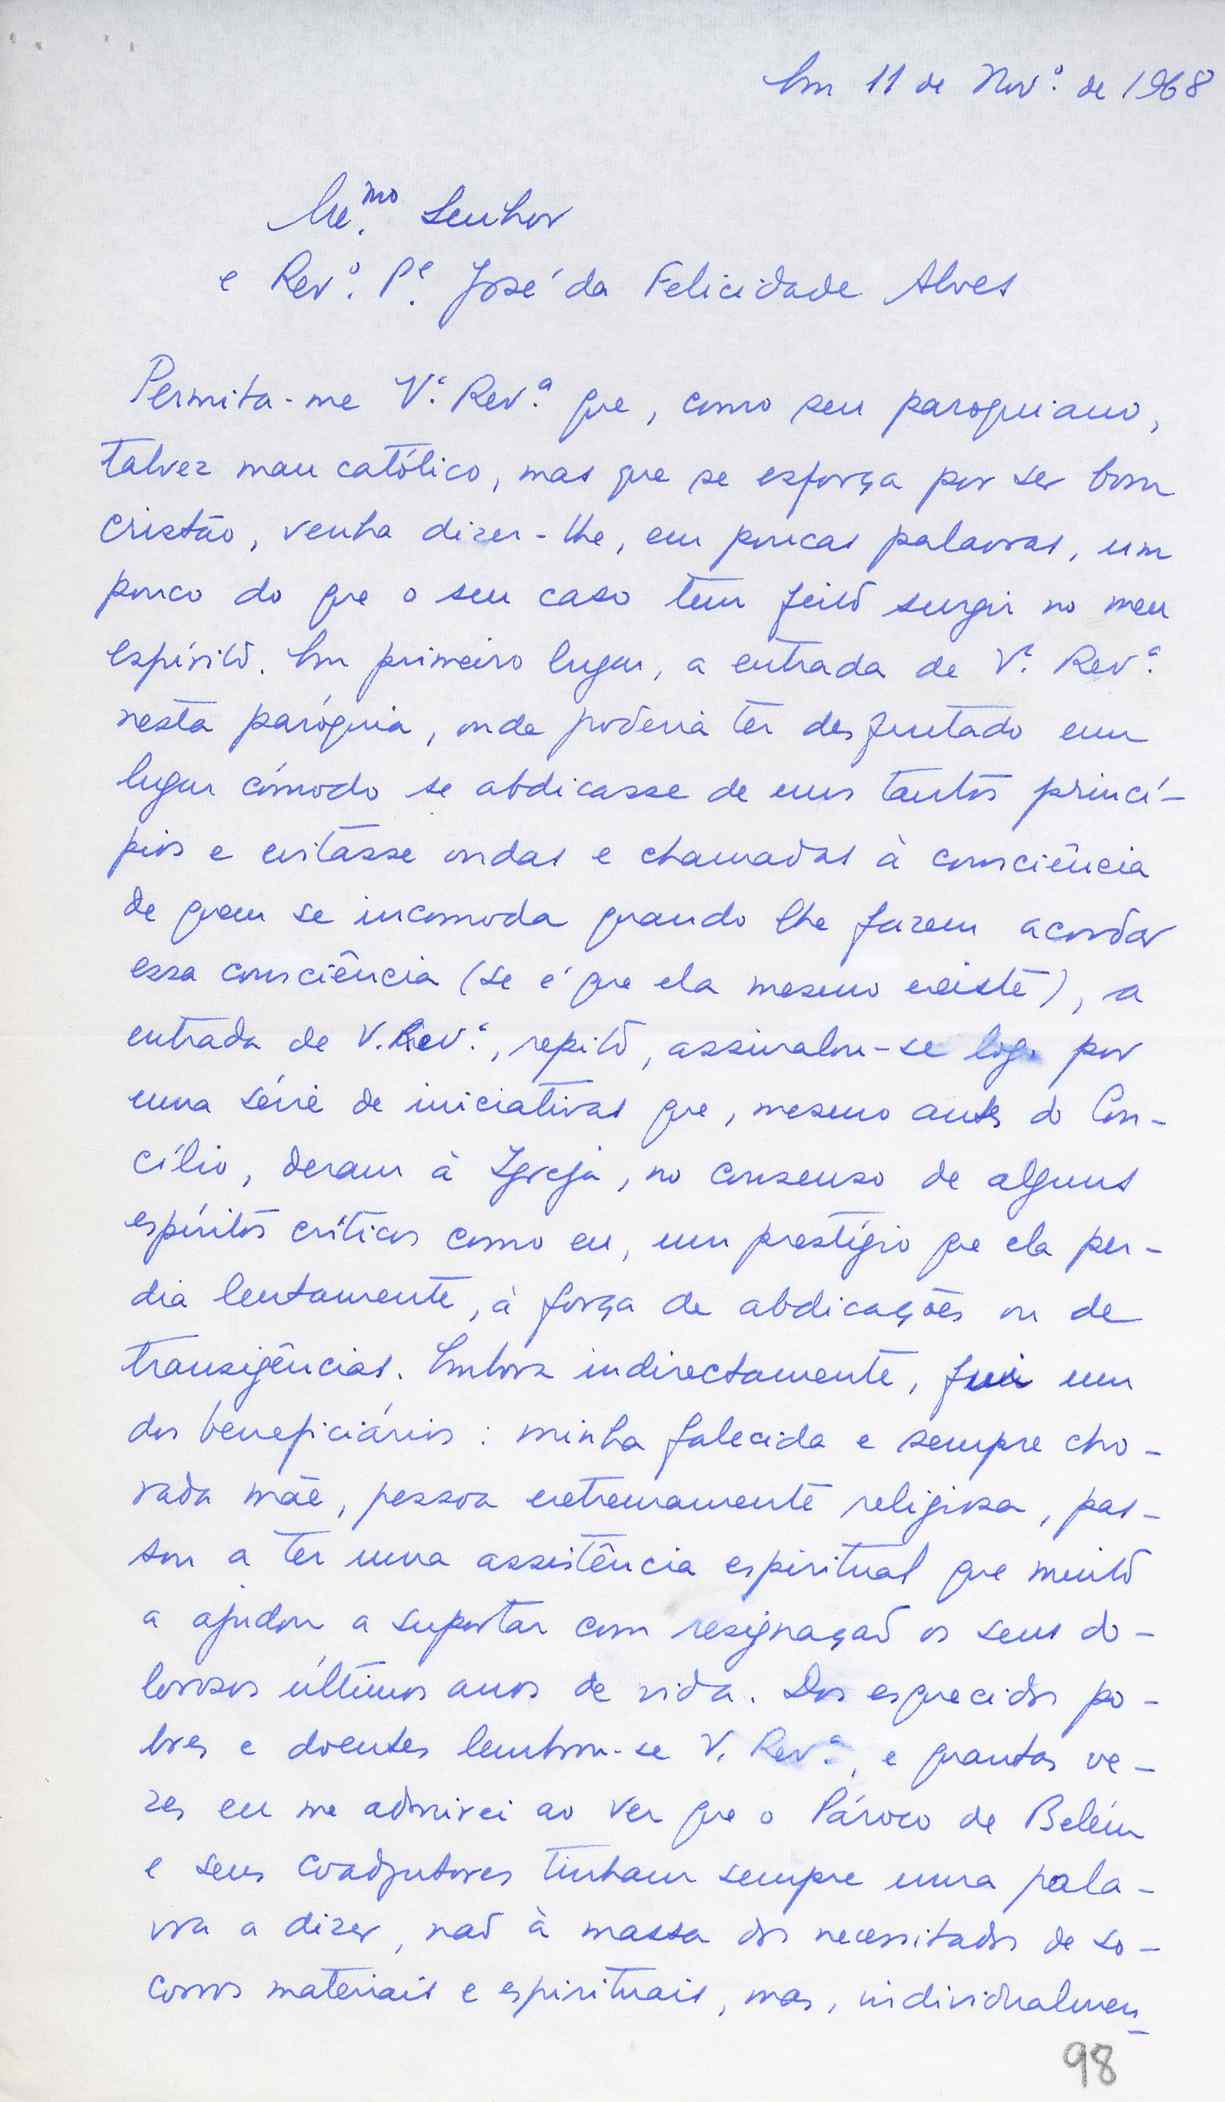 Em 11 de Nov.º de 1968
Ex.mo Senhor
e Rev.º P.e José da Felicidade Alves
Permita-me V.ª Rev.ª que, como seu paroquiano,
talvez mau católico, mas que se esforça por ser bom
cristão, venha dizer-lhe, em poucas palavras, um
pouco do que o seu caso tem feito surgir no meu
espírito. Em primeiro lugar, a entrada de V.ª Rev.ª
nesta paróquia, onde poderia ter desfrutado um
lugar cómodo se abdicasse de uns tantos princí-
pios e evitasse ondas e chamadas à consciência
de quem se incomoda quando lhe fazem acordar
essa consciência (se é que ela mesmo existe), a
entrada de V. Rev.ª, repito, assinalou-se logo por
uma série de iniciativas que, mesmo antes do Con-
cílio, deram à Igreja, no consenso de alguns
espíritos críticos como eu, um prestígio que ela per-
dia lentamente, à força de abdicações ou de
transigências. Embora indirectamente, fui um
dos beneficiários: minha falecida e sempre cho-
rada mãe, pessoa extremamente religiosa, pas-
sou a ter uma assistência espiritual que muito
a ajudou a suportar com resignação os seus do-
lorosos últimos anos de vida. Dos esquecidos po-
bres e doentes lembrou-se V. Rev.ª, e quantas ve-
zes eu me admirei ao ver que o Pároco de Belém
e seus coadjutores tinham sempre uma pala-
vra a dizer, não à massa dos necessitados de so-
corros materiais e espirituais, mas, individualmen-
98